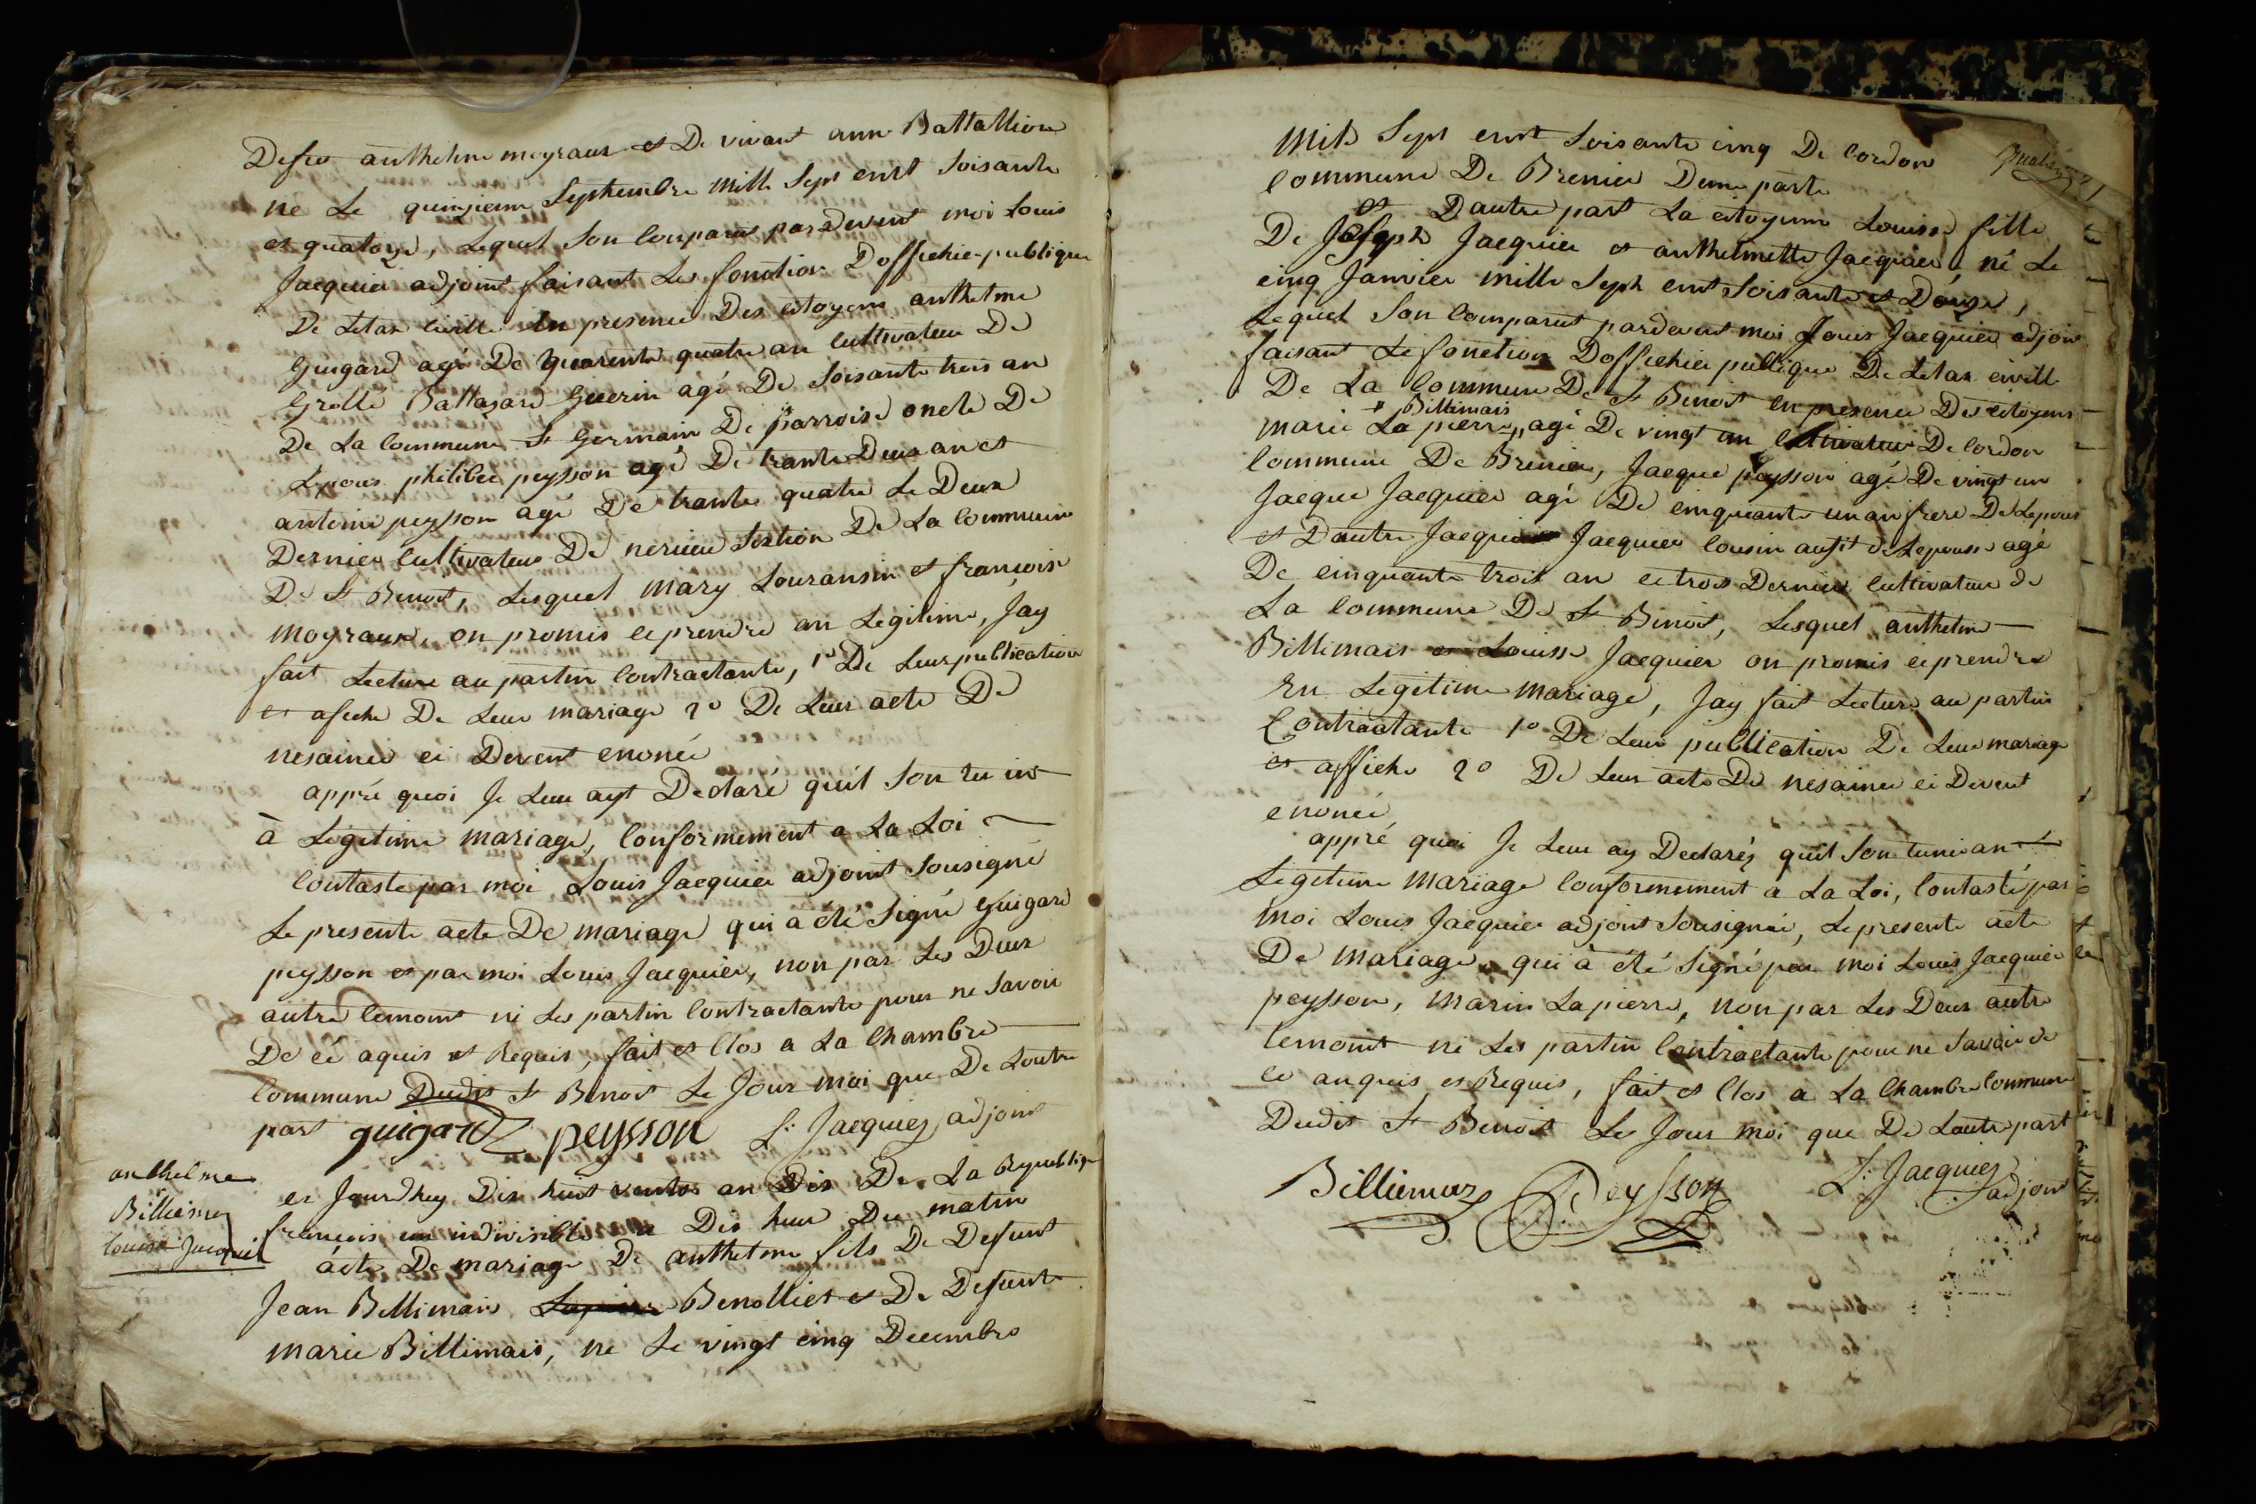 Defeu anthelme moyraux et De vivant anne Battallion
ne Le quinzeme Septembre mille Sept cent soisante
et quatorze, Lequel Son Comparut pardevent moi Louis
Jacquier adjoint faisant Les fonction Doffichie publique
De Letax civille En presence Des citoyens anthelme
Guigard agé De quarente quatre an Cultivateur De
Grolle Baltazard Guerin agé De soisante trois an
De La Commune St Germain De parroise oncle De
Lepous philiber peysson agé De trante Deux an et
antoine peysson agé De trante quatre Le Deux
Dernier Cultivateur De nerieu Section De La Commune
De St Benoit, Lesquel mary Louransin et francoise
moyraux, on promis ceprendre an Legitime, Jay
fait Lecture au partin Contractante, 1° De Leur publication
et afiche De Leur mariage 2° De Leur acte De
nesaince ci Devent enoncé
appré quoi Je Leur ayt Declaré quil Son
à Legitime mariage, Conformement a La Loi
Contaste par moi Louis Jacquier adjoint Sousigné
Le presente acte De mariage qui a été Signé Guigard
peysson et par moi Louis Jacquier, non par Les Deux
autre temoint ni Les partin Contractante pour ne Savoir
De cé aquis et Requis, fait et Clos a La Chambre
Commune Dudit St Benoit Le Jour moi que De Loutre
part guigard peysson L: Jacquier adjoint
anthelme
Billiemaz
Louise Jacquie
ce Jourdhuy Dix huit ventos an Dix De La Republiqe
francois un indivisible a Dix heur Du matin
acte De mariage De anthelme fils De Defunt
Jean Billimais Lapierre Benollier et De Defunte
marie Billimais, ne Le vingt cinq Decembre
mils Sept cent Soisante cinq De Cordon
Commune De Brenier Dune parte
et Dautre part La citoyenne Louisse fille
De Joseph Jacquier et anthelmette Jacquier, né Le
cinq Janvier mille Seph cent Soisante et Douze,
Lequel Son Comparut pardevent moi Louis Jacquier adjoin
faisant Le fonction Doffichier publique De Letax civill
De La Commune De St Benoit en presence Des citoyens
Billimais
marie La pierre, agé De vingt un Cultivateur De Cordon
Commune De Brenier, Jacque peysson agé De vingt un
Jacque Jacquier agé De cinquante un an frere De Lepous
et Dautre Jacquier Jacquier Cousin ausit de Lepousse agé
De cinquante troit an ce trois Dernier Cultivateur de
La Commune De St Binoit, Lesquel anthelme
Billimais et Louisse Jacquier on promis ceprendre
En Legitime mariage, Jay fait Lecture au partin
Contractante 1° De Leur publication De Leur mariage
et affiche 2° De Leur acte De nesaince ci Devent
enoncé
appré quoi Je Leur ay Declaréz quil Son tunie an
Legitime mariage Conformement a La Loi, Contasté par
moi Louis Jacquier adjoint Sousignéé, Le presente acte
De mariage qui à été Signé par moi Louis Jacquier
peysson, Marin Lapierre, non par Les Deux autre
temoint ni Les partin Contractante pour ne Savoir de
ce anquis et Requis, fait et Clos a La Chambre Commune
Dudit St Benoit Le Jour moi que De Lautre part
Billiemaz Peysson L: Jacquier
adjoint